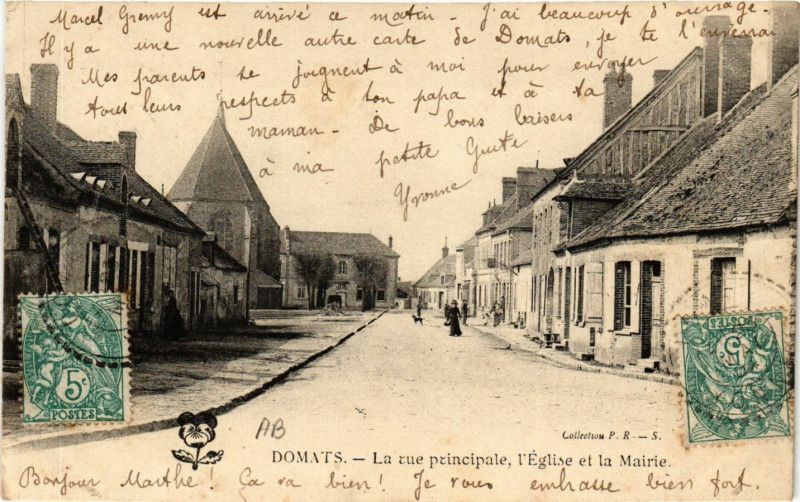 Marcel est arrivé ce matin - J'ai beaucoup d'ouvrage.
Il y a une nouvelle autre carte de Domats, je te l'enverrai
Mes parents se joignent à moi pour envoyer
tous leurs respects à ton papa et à ta
maman - De bons baisers
à ma petite
Yvonne
5c
POSTES
POSTES
5c
AB
Collection P. R. — S.
DOMATS. — La rue principale, l'Église et la Mairie.
Bonjour Marthe! Ça va bien! Je vous embrasse bien fort.